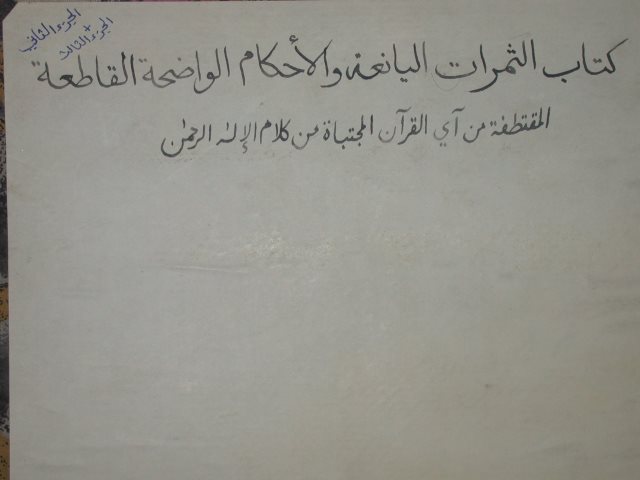 الجزء الثاني
+
الجزء الثالث
كتاب الثمرات اليانعة والأحكام الواضحة القاطعة
المقتطفة من آي القرآن المجتباة من كلام الإله الرحمن